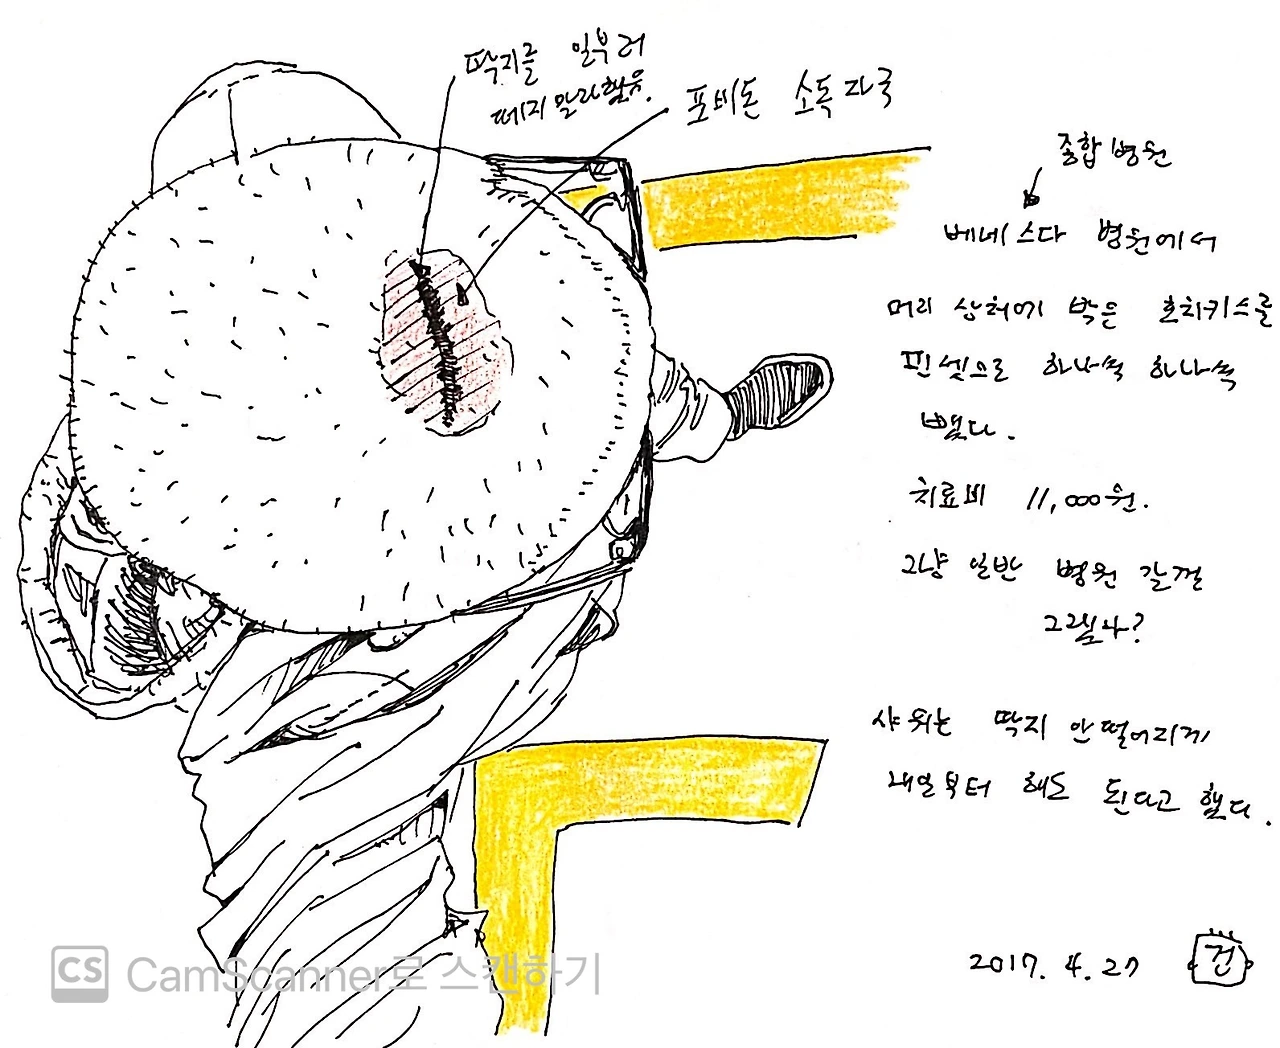 딱지를 일부러
떼지 말라했음.
포비돈 소독 자국
종합병원
베네스다 병원에서
머리 상처에 박은 호치키스를
핀셋으로 하나씩 하나씩
뺐다.
치료비 11,000원.
그냥 일반 병원 갈껄
그랬나?
샤워는 딱지 안떨어지게
내일부터 해도 된다고 했다.
2017. 4. 27
건
CS CamScanner로 스캔하기